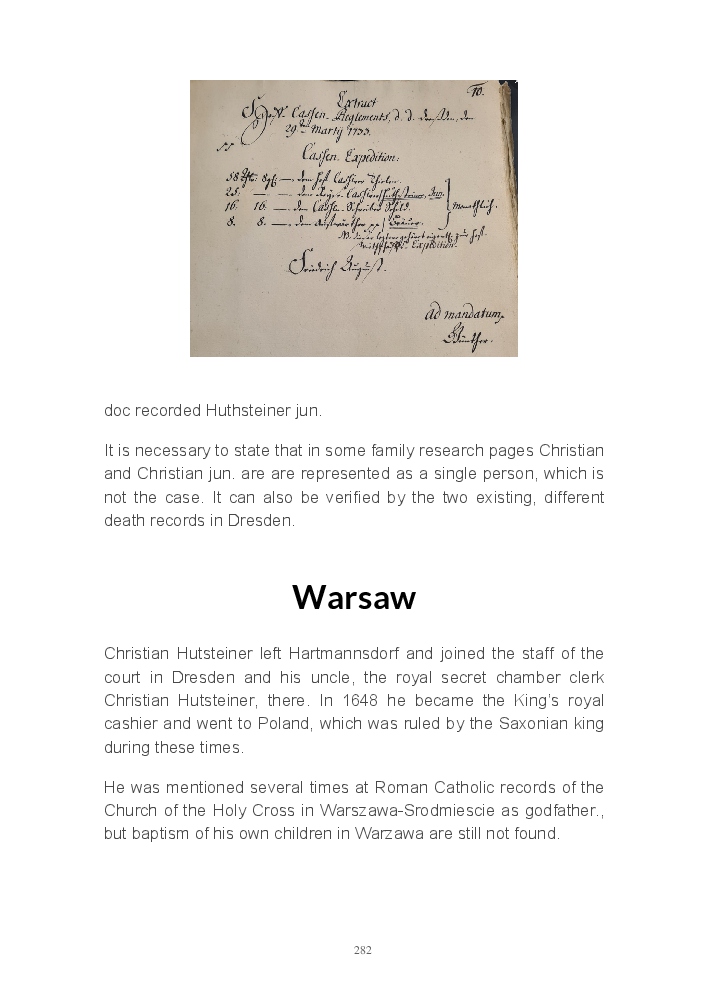 10.
Extract
Cassen Reglements, d. d.
29. Martij 1733.
Cassen Expedition:
58
25.
16. 16. — Schild.
8. 8. —
monathlich.
Expedition.
Friedrich August.
Ad mandatum,
Günther.
doc recorded Huthsteiner jun.
It is necessary to state that in some family research pages Christian
and Christian jun. are are represented as a single person, which is
not the case. It can also be verified by the two existing, different
death records in Dresden.
Warsaw
Christian Hutsteiner left Hartmannsdorf and joined the staff of the
court in Dresden and his uncle, the royal secret chamber clerk
Christian Hutsteiner, there. In 1648 he became the King's royal
cashier and went to Poland, which was ruled by the Saxonian king
during these times.
He was mentioned several times at Roman Catholic records of the
Church of the Holy Cross in Warszawa-Srodmiescie as godfather.,
but baptism of his own children in Warzawa are still not found.
282